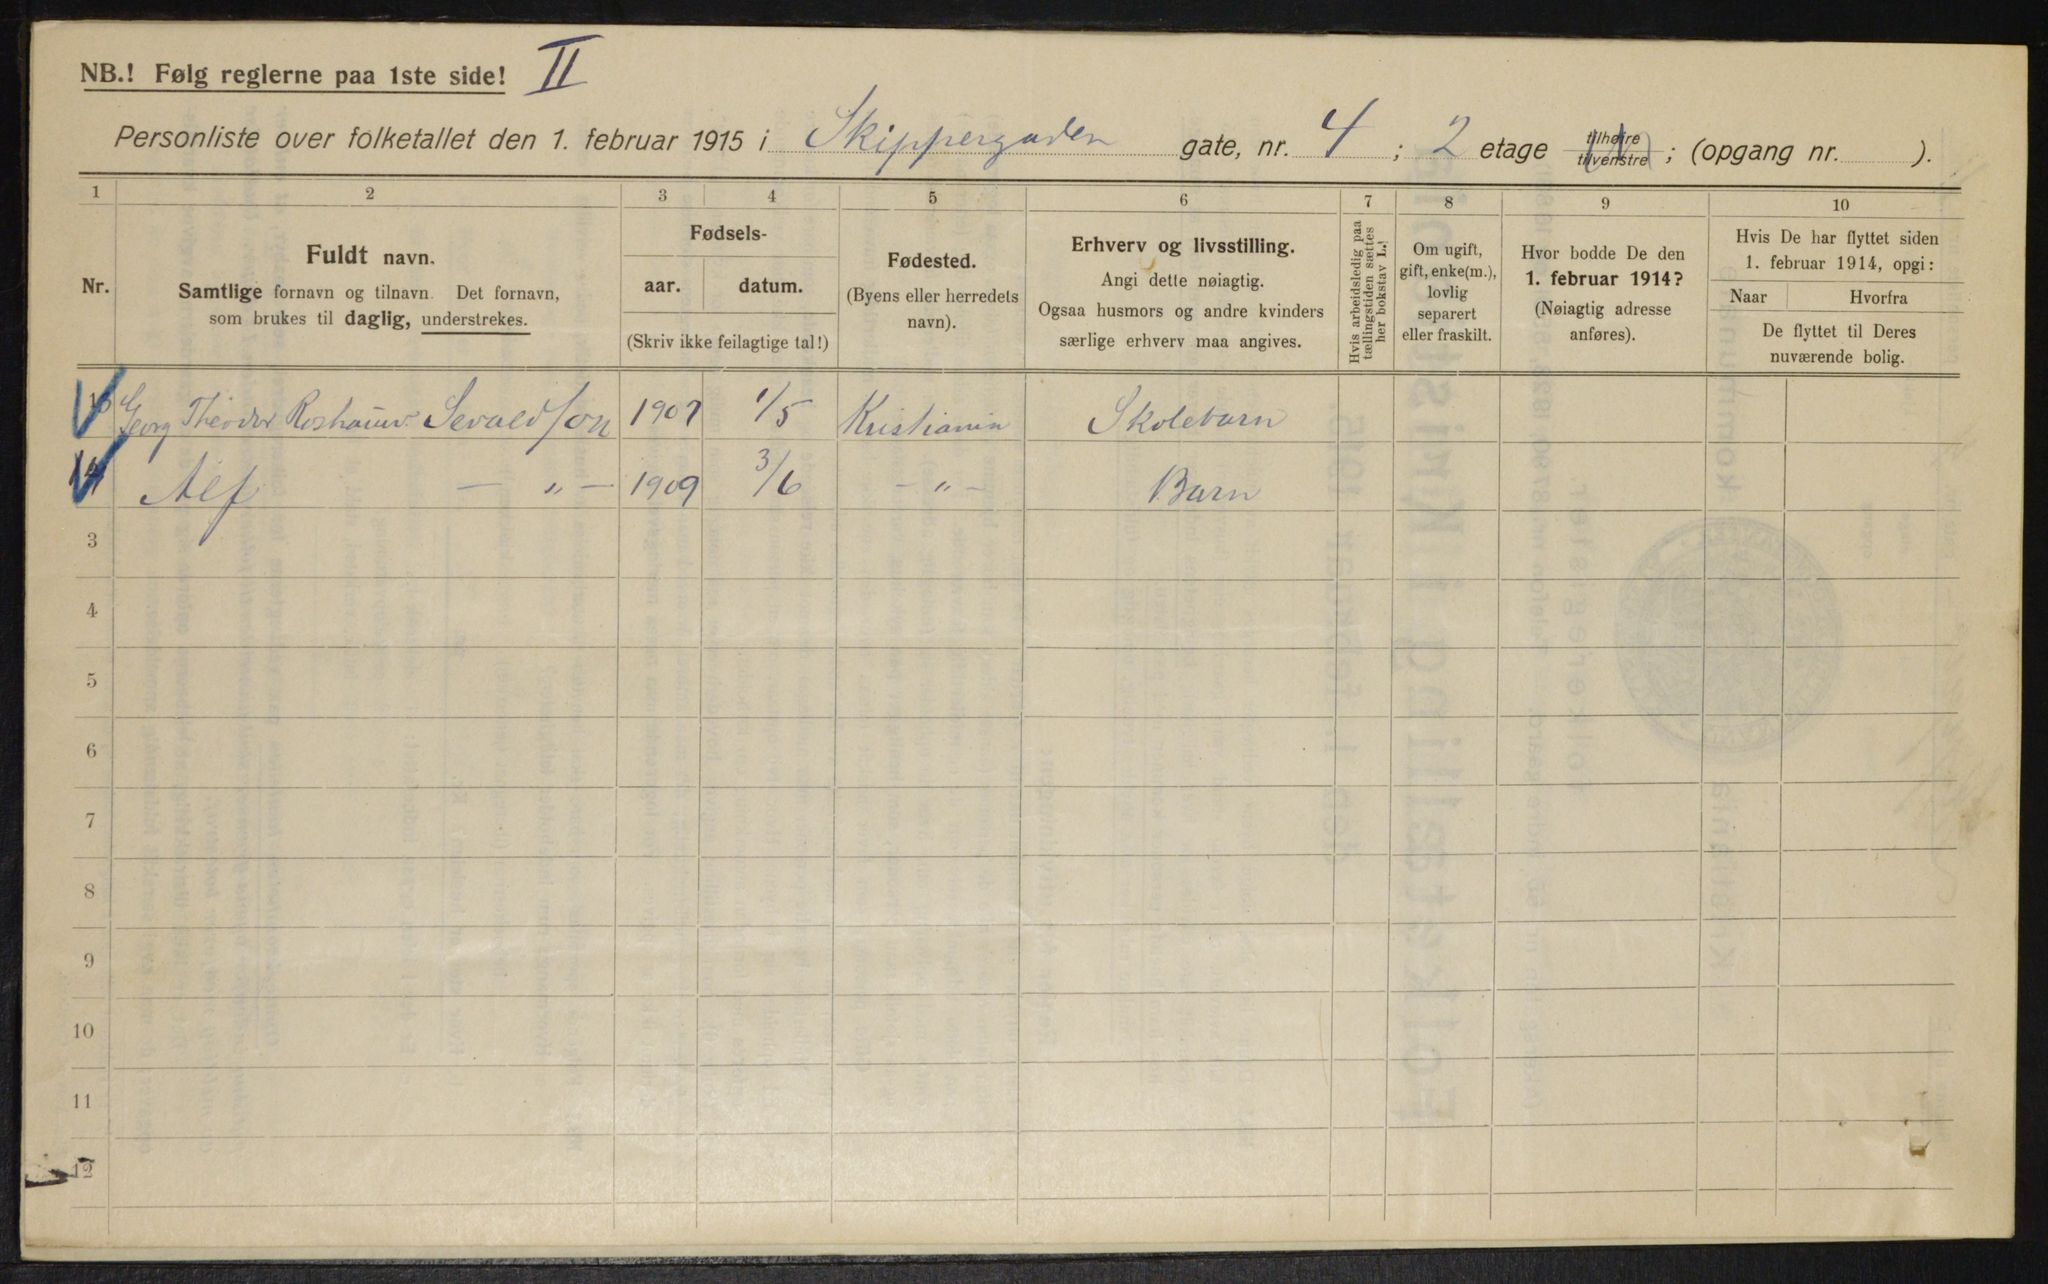 NB.! Følg reglerne paa 1ste side! II
Personliste over folketallet den 1. februar 1915 i Skippergaden gate, nr. 4 ; 2 etage tilhøire tilvenstre ; (opgang nr. ).
1 2 3 4 5 6 7 8 9 10
Nr.
Fuldt navn.
Samtlige fornavn og tilnavn. Det fornavn,
som brukes til daglig, understrekes.
Fødsels-
aar. datum.
(Skriv ikke feilagtige tal!)
Fødested.
(Byens eller herredets
navn).
Erhverv og livsstilling.
Angi dette nøiagtig.
Ogsaa husmors og andre kvinders
særlige erhverv maa angives.
Hvis arbeidsledig paa
tællingstiden sættes
her bokstav L.!
Om ugift,
gift, enke(m.),
lovlig
separert
eller fraskilt.
Hvor bodde De den
1. februar 1914?
(Nøiagtig adresse
anføres).
Hvis De har flyttet siden
1. februar 1914, opgi:
Naar Hvorfra
De flyttet til Deres
nuværende bolig.
Georg Theodor Sevaldson 1907 1/5 Kristiania Skolebarn
Alf — „ — 1909 3/6 - „ - Barn
3
4
5
6
7
8
9
10
11
12